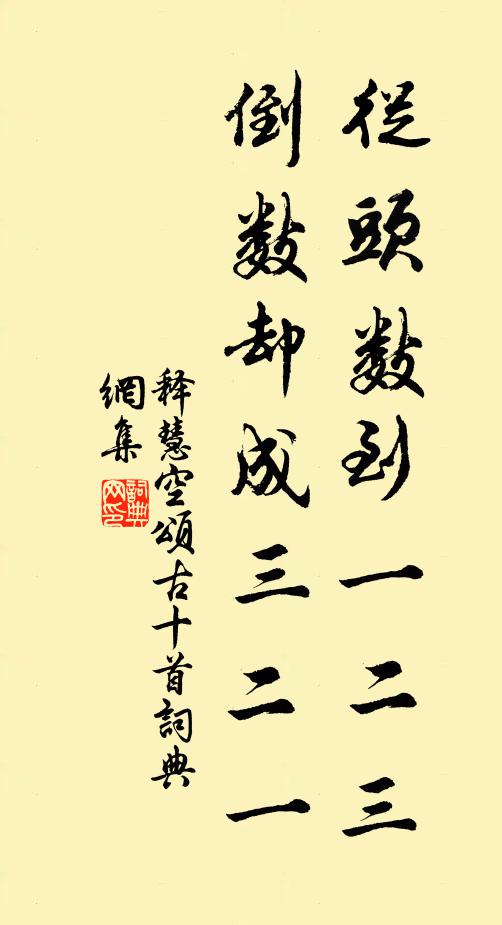 從頭數到一二三
倒數却成三二一
释慧空頌古十首詞典
網集
詞典
网印